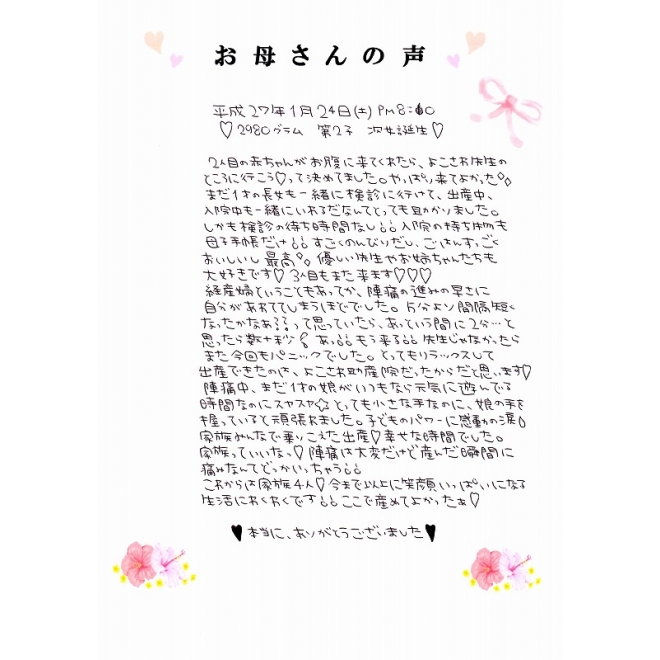 お母さんの声
平成27年1月24日(土)PM8:10
♡2980グラム 第2子 次女誕生♡
2人目の赤ちゃんがお腹に来てくれたら、よこさわ先生の
ところに行こう♡って決めてました。やっぱり来てよかった
まだ1才の長女も一緒に検診に行けて、出産中、
入院中も一緒にいれるだなんてとっても助かりました。
しかも検診の待ち時間なし!!入院の持ち物も
母子手帳だけ!!すごくのんびりだし、ごはんすっごく
おいしいし最高 優しい先生やお姉ちゃんたちも
大好きです♡3人目もまた来ます♡♡♡
経産婦ということもあってか、陣痛の進みの早さに
自分があわててしまうほどでした。5分より間隔短く
なったかなぁ??って思っていたら、あっという間に2分…と
思ったら数十秒 あっ!!もう来る!!先生じゃなかったら
また今回もパニックでした。とってもリラックスして
出産できたのは、よこさわ助産院だったからだと思います♡
陣痛中、まだ1才の娘がいつもなら元気に遊んでる
時間なのにスヤスヤ☆とっても小さな手なのに、娘の手を
握っていると頑張れました。子どものパワーに感動の涙
家族みんなで乗りこえた出産♡幸せな時間でした。
家族っていいなっ♡陣痛は大変だけど産んだ瞬間に
痛みなんてどっかいっちゃう!!
これからは家族4人♡今まで以上に笑顔いっぱいになる
生活にわくわくです!!ここで産めてよかったぁ♡
♥本当に、ありがとうございました♥